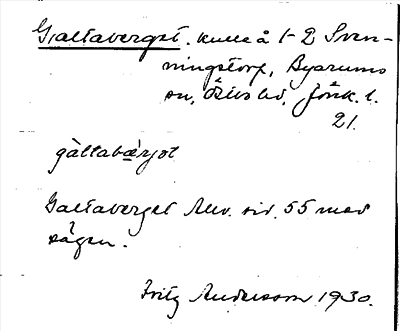 Galtaberget. kulle å 1-2 Sven-
ningstorp, Byarums
sn, Östbo hd, Jönk. l.
21.
gàltabærjət
Galtaberget Allv. sid. 55 med
sägen.
Fritz Andersson 1930.